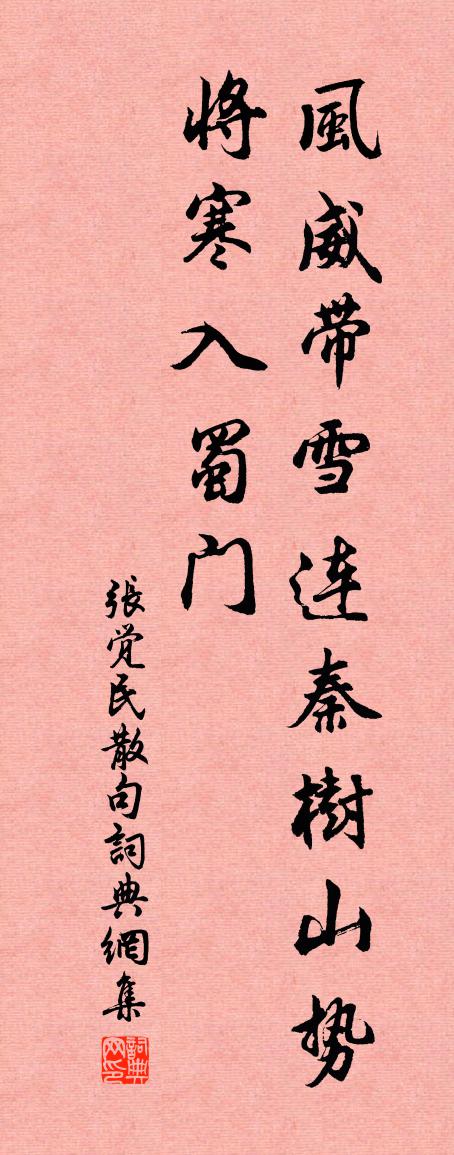 風威带雪连秦樹山势
将寒入蜀门
張觉民散句詞典網集
詞典
网印